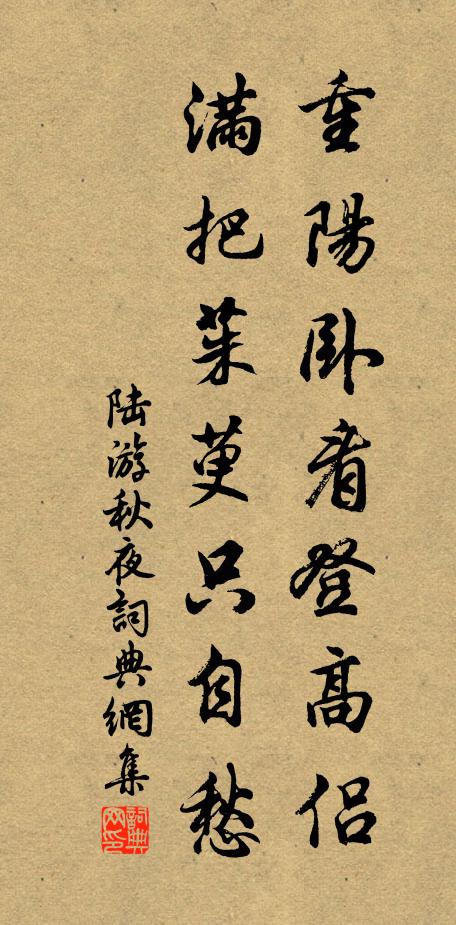 重陽卧看登高侣
滿把茱萸只自愁
陆游秋夜詞典網集
詞典网印